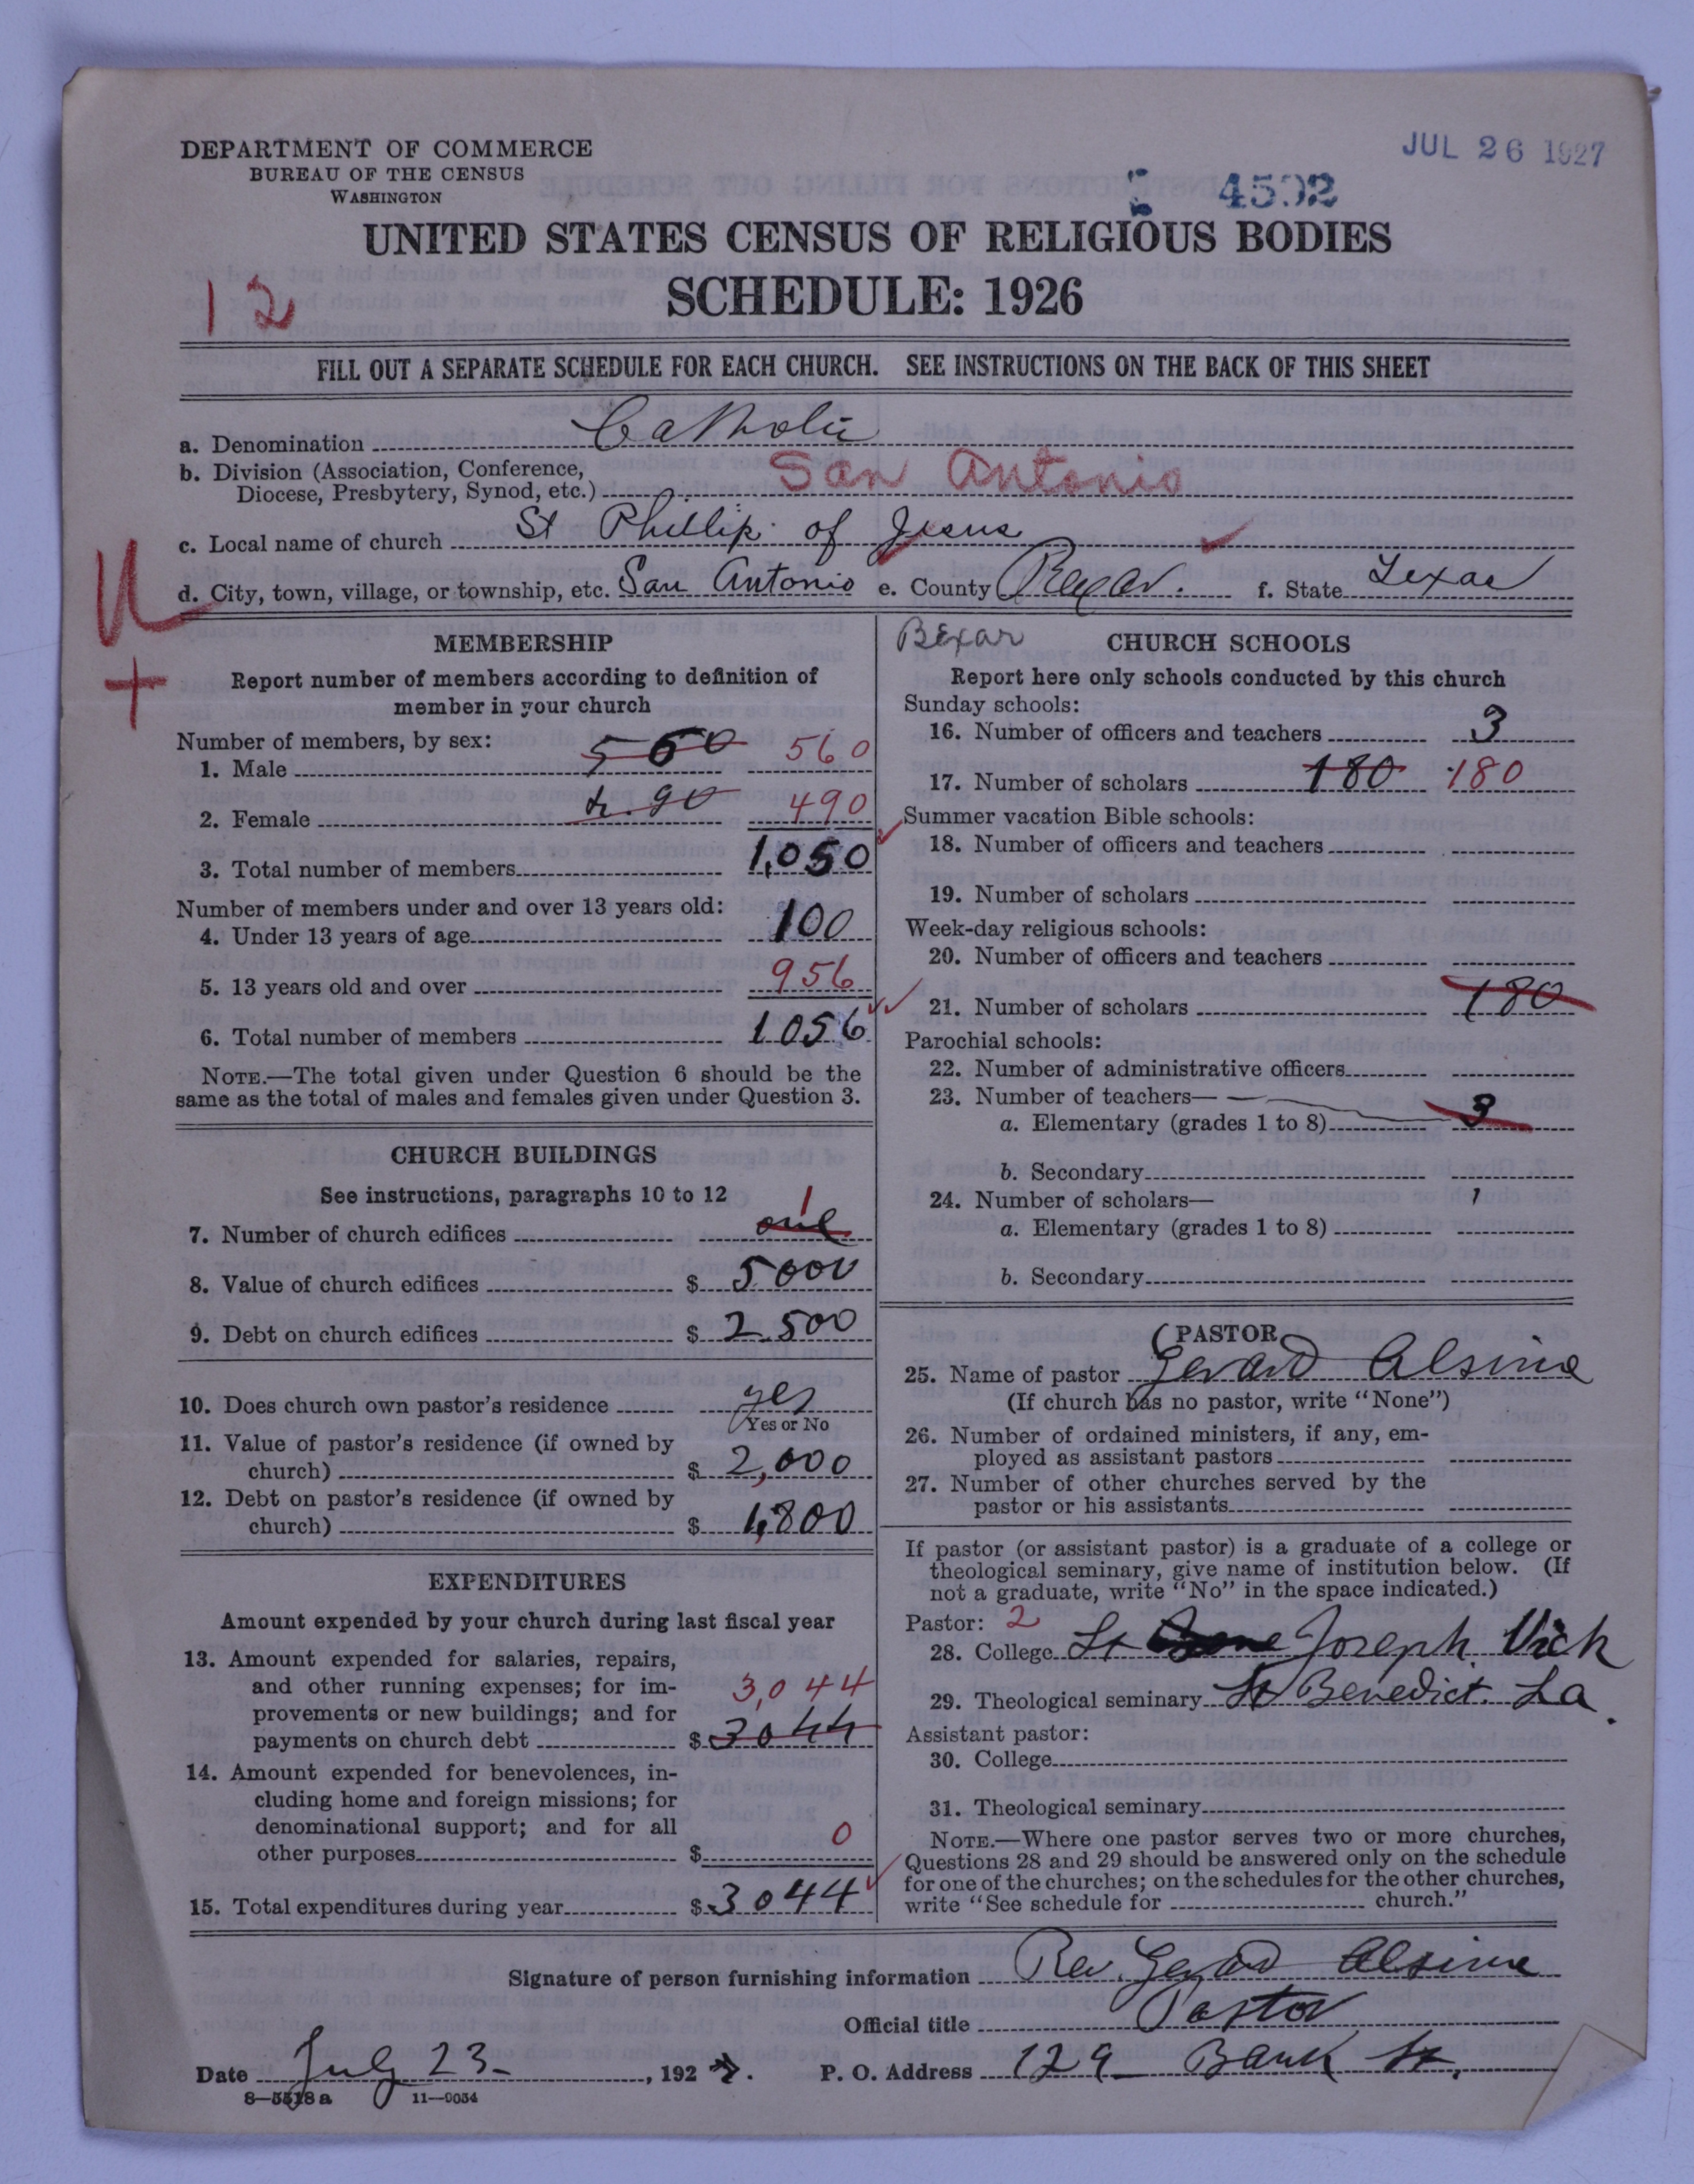 DEPARTMENT OF COMMERCE
BUREAU OF THE CENSUS
WASHINGTON
JUL 26 1927
4592
UNITED STATES CENSUS OF RELIGIOUS BODIES
SCHEDULE: 1926
12
FILL OUT A SEPARATE SCHEDULE FOR EACH CHURCH. SEE INSTRUCTIONS ON THE BACK OF THIS SHEET
a. Denomination Catholic
b. Division (Association, Conference,
Diocese, Presbytery, Synod, etc.) San Antonio
c. Local name of church St Phillip of Jesus
d. City, town, village, or township, etc. San Antonio e. County Bexar. f. State Texas
MEMBERSHIP
Report number of members according to definition of
member in your church
Number of members, by sex:
1. Male 560 560
2. Female 4.90 490
3. Total number of members 1,050
Number of members under and over 13 years old:
4. Under 13 years of age 100
5. 13 years old and over 956
6. Total number of members 1056
NOTE.—The total given under Question 6 should be the
same as the total of males and females given under Question 3.
CHURCH BUILDINGS
See instructions, paragraphs 10 to 12
1
7. Number of church edifices one
8. Value of church edifices $ 5000
9. Debt on church edifices $ 2.500
10. Does church own pastor's residence yes
Yes or No
11. Value of pastor's residence (if owned by
church) $ 2,000
12. Debt on pastor's residence (if owned by
church) $ 1,800
EXPENDITURES
Amount expended by your church during last fiscal year
13. Amount expended for salaries, repairs,
and other running expenses; for im- 3,044
provements or new buildings; and for
payments on church debt $ 3044
14. Amount expended for benevolences, in-
cluding home and foreign missions; for
denominational support; and for all
other purposes $ 0
15. Total expenditures during year $ 3044
Bexar
CHURCH SCHOOLS
Report here only schools conducted by this church
Sunday schools:
16. Number of officers and teachers 3
17. Number of scholars 180 180
Summer vacation Bible schools:
18. Number of officers and teachers
19. Number of scholars
Week-day religious schools:
20. Number of officers and teachers
21. Number of scholars 180
Parochial schools:
22. Number of administrative officers
23. Number of teachers—
a. Elementary (grades 1 to 8) 3
b. Secondary
24. Number of scholars—
a. Elementary (grades 1 to 8)
b. Secondary
PASTOR
25. Name of pastor Gerard Alsina
(If church has no pastor, write "None")
26. Number of ordained ministers, if any, em-
ployed as assistant pastors
27. Number of other churches served by the
pastor or his assistants
If pastor (or assistant pastor) is a graduate of a college or
theological seminary, give name of institution below. (If
not a graduate, write "No" in the space indicated.)
Pastor: 2
28. College St Joseph. Vich
29. Theological seminary St Benedict. La.
Assistant pastor:
30. College
31. Theological seminary
NOTE.—Where one pastor serves two or more churches,
Questions 28 and 29 should be answered only on the schedule
for one of the churches; on the schedules for the other churches,
write "See schedule for church."
Signature of person furnishing information Rev. Gerard Alsina
Official title Pastor
Date July 23 , 1927. P. O. Address 129 Bank St.
8—5518a 11—9054